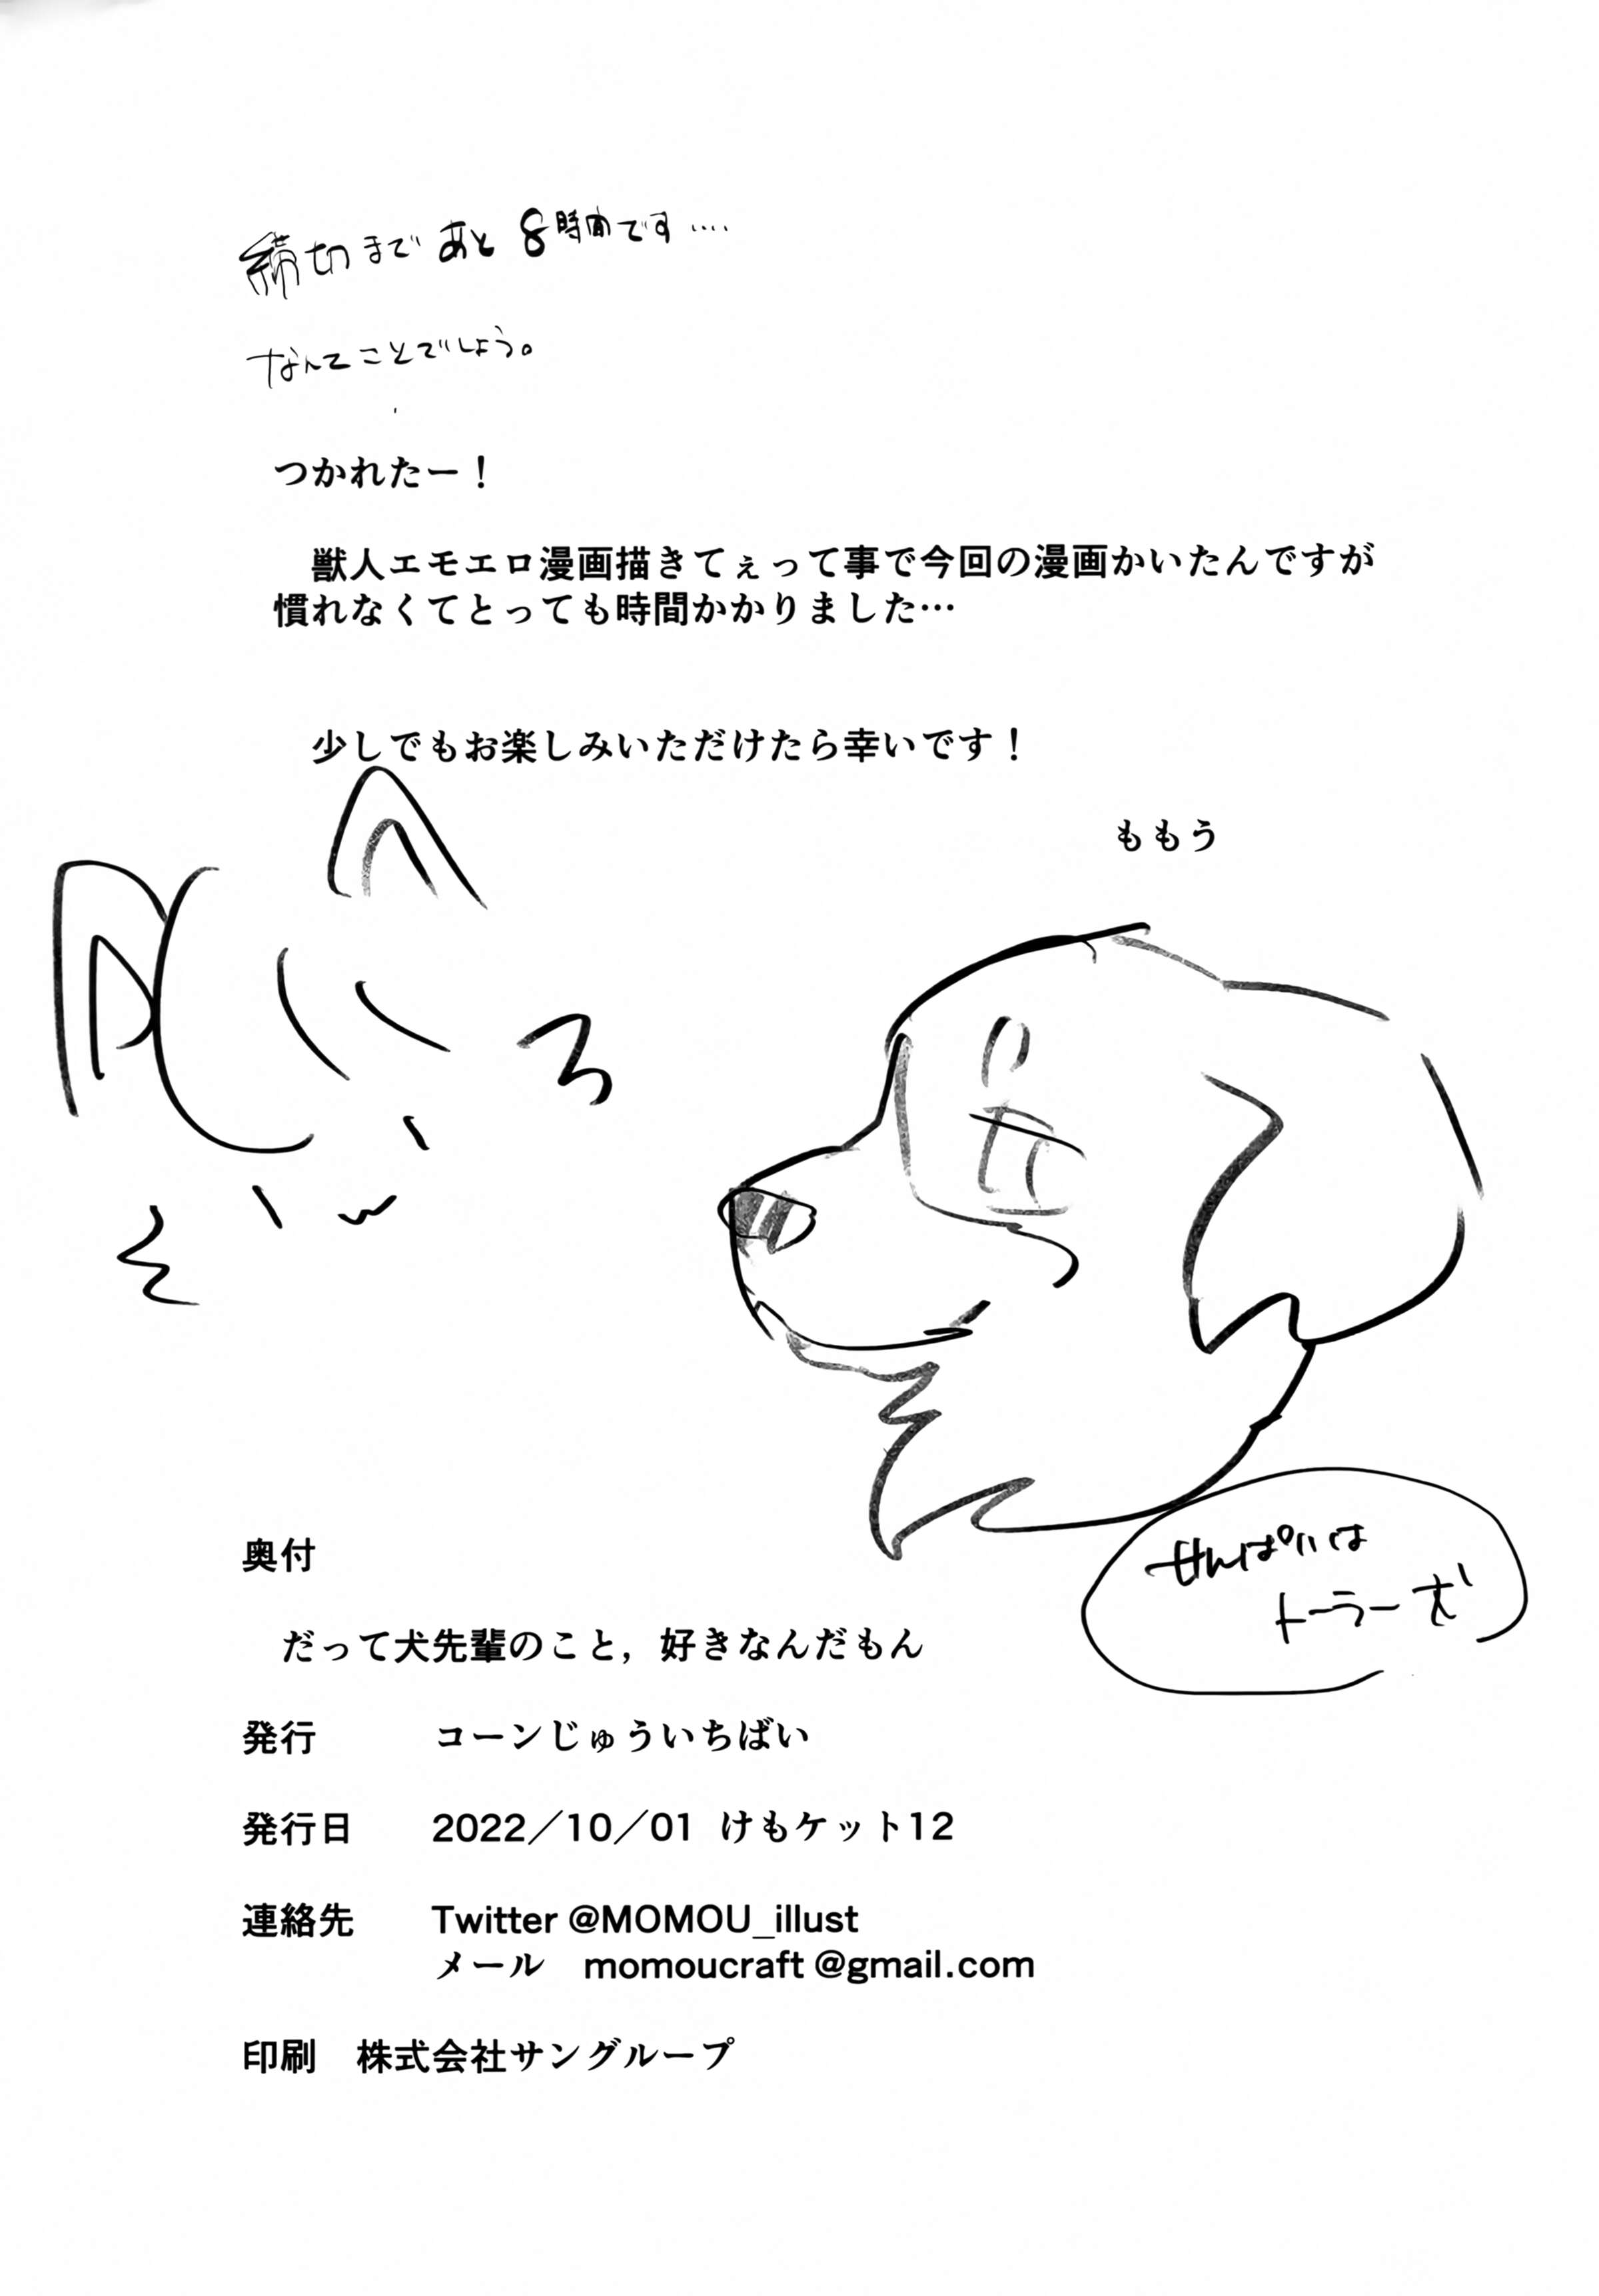 締切まであと8時間です‥‥
なんてことでしょう。
つかれたー！
獣人エモエロ漫画描きてぇって事で今回の漫画かいたんですが
慣れなくてとっても時間かかりました…
少しでもお楽しみいただけたら幸いです！
ももう
せんぱいは
トーラーズ
奥付
だって犬先輩のこと，好きなんだもん
発行 コーンじゅういちばい
発行日 2022／10／01 けもケット12
連絡先 Twitter @MOMOU_illust
メール momoucraft @gmail.com
印刷 株式会社サングループ